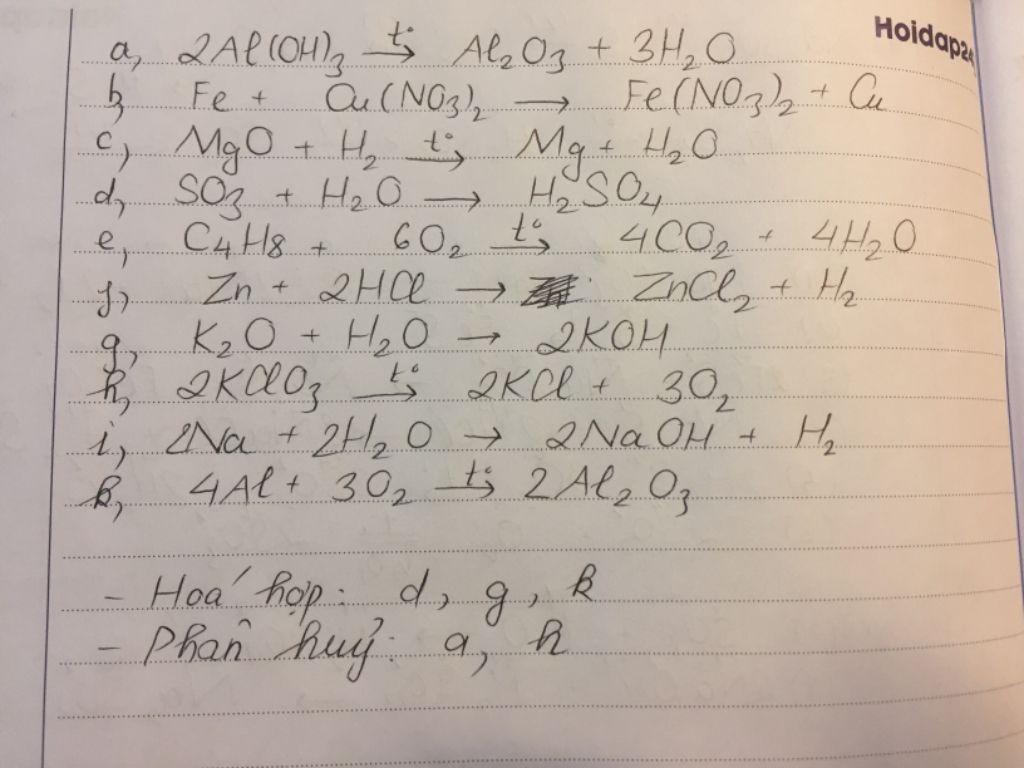 Hoidap24
a, 2Al(OH)₃ t°→ Al₂O₃ + 3H₂O
b, Fe + Cu(NO₃)₂ → Fe(NO₃)₂ + Cu
c, MgO + H₂ t°→ Mg + H₂O
d, SO₃ + H₂O → H₂SO₄
e, C₄H₈ + 6O₂ t°→ 4CO₂ + 4H₂O
f, Zn + 2HCl → ZnCl₂ + H₂
g, K₂O + H₂O → 2KOH
h, 2KClO₃ t°→ 2KCl + 3O₂
i, 2Na + 2H₂O → 2NaOH + H₂
k, 4Al + 3O₂ t°→ 2Al₂O₃
- Hoá hợp: d, g, k
- Phân huỷ: a, h